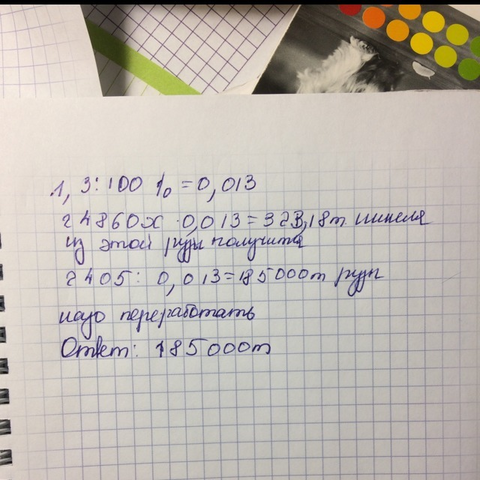 1,3:100%=0,013
24860х·0,013=323,18т никеля
из этой руды получится
2405:0,013=185000т руды
надо переработать
Ответ: 185000т